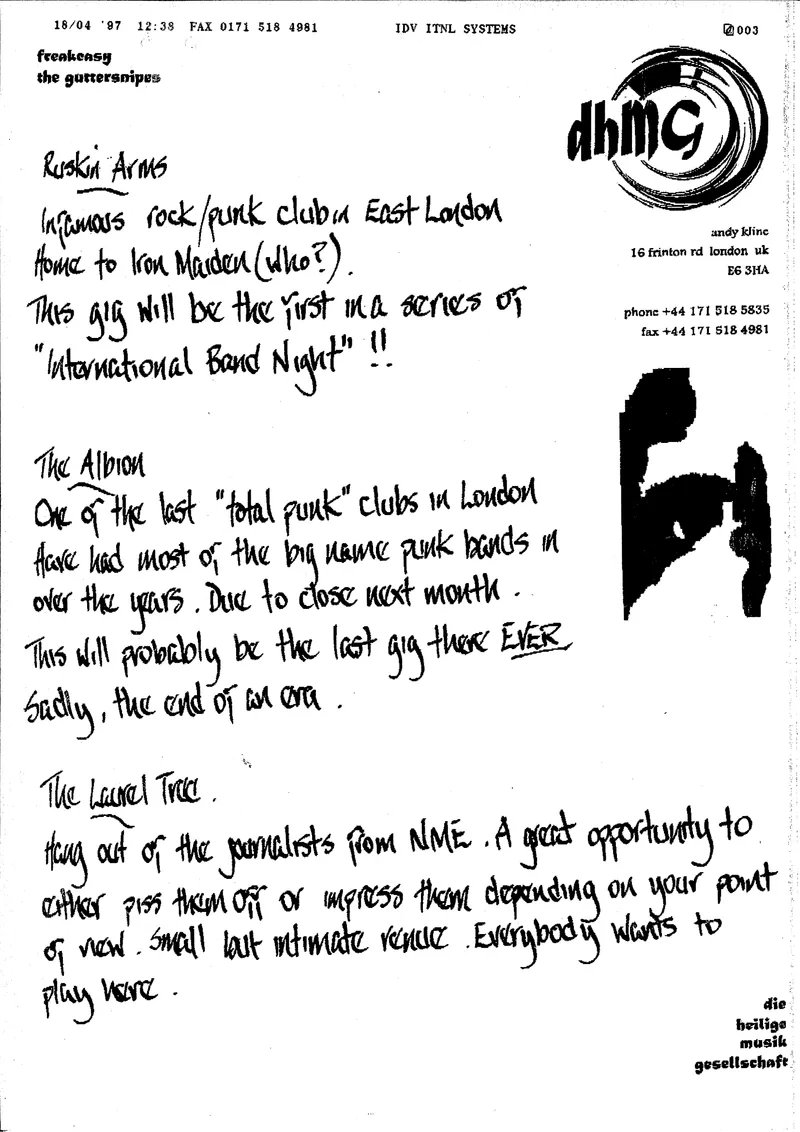 18/04 '97 12:38 FAX 0171 518 4981 IDV ITNL SYSTEMS 003
freakeasy
the guttersnipes
dhmg
andy kline
16 frinton rd london uk
E6 3HA
phone +44 171 518 5835
fax +44 171 518 4981
Ruskin Arms
Infamous rock/punk club in East London
Home to Iron Maiden (who?).
This gig will be the first in a series of
"International Band Night" !!
The Albion
One of the last "total punk" clubs in London
Have had most of the big name punk bands in
over the years. Due to close next month.
This will probably be the last gig there EVER
Sadly, the end of an era.
The Laurel Tree.
Hang out of the journalists from NME. A great opportunity to
either piss them off or impress them depending on your point
of view. Small but intimate venue. Everybody wants to
play here.
die
heilige
musik
gesellschaft